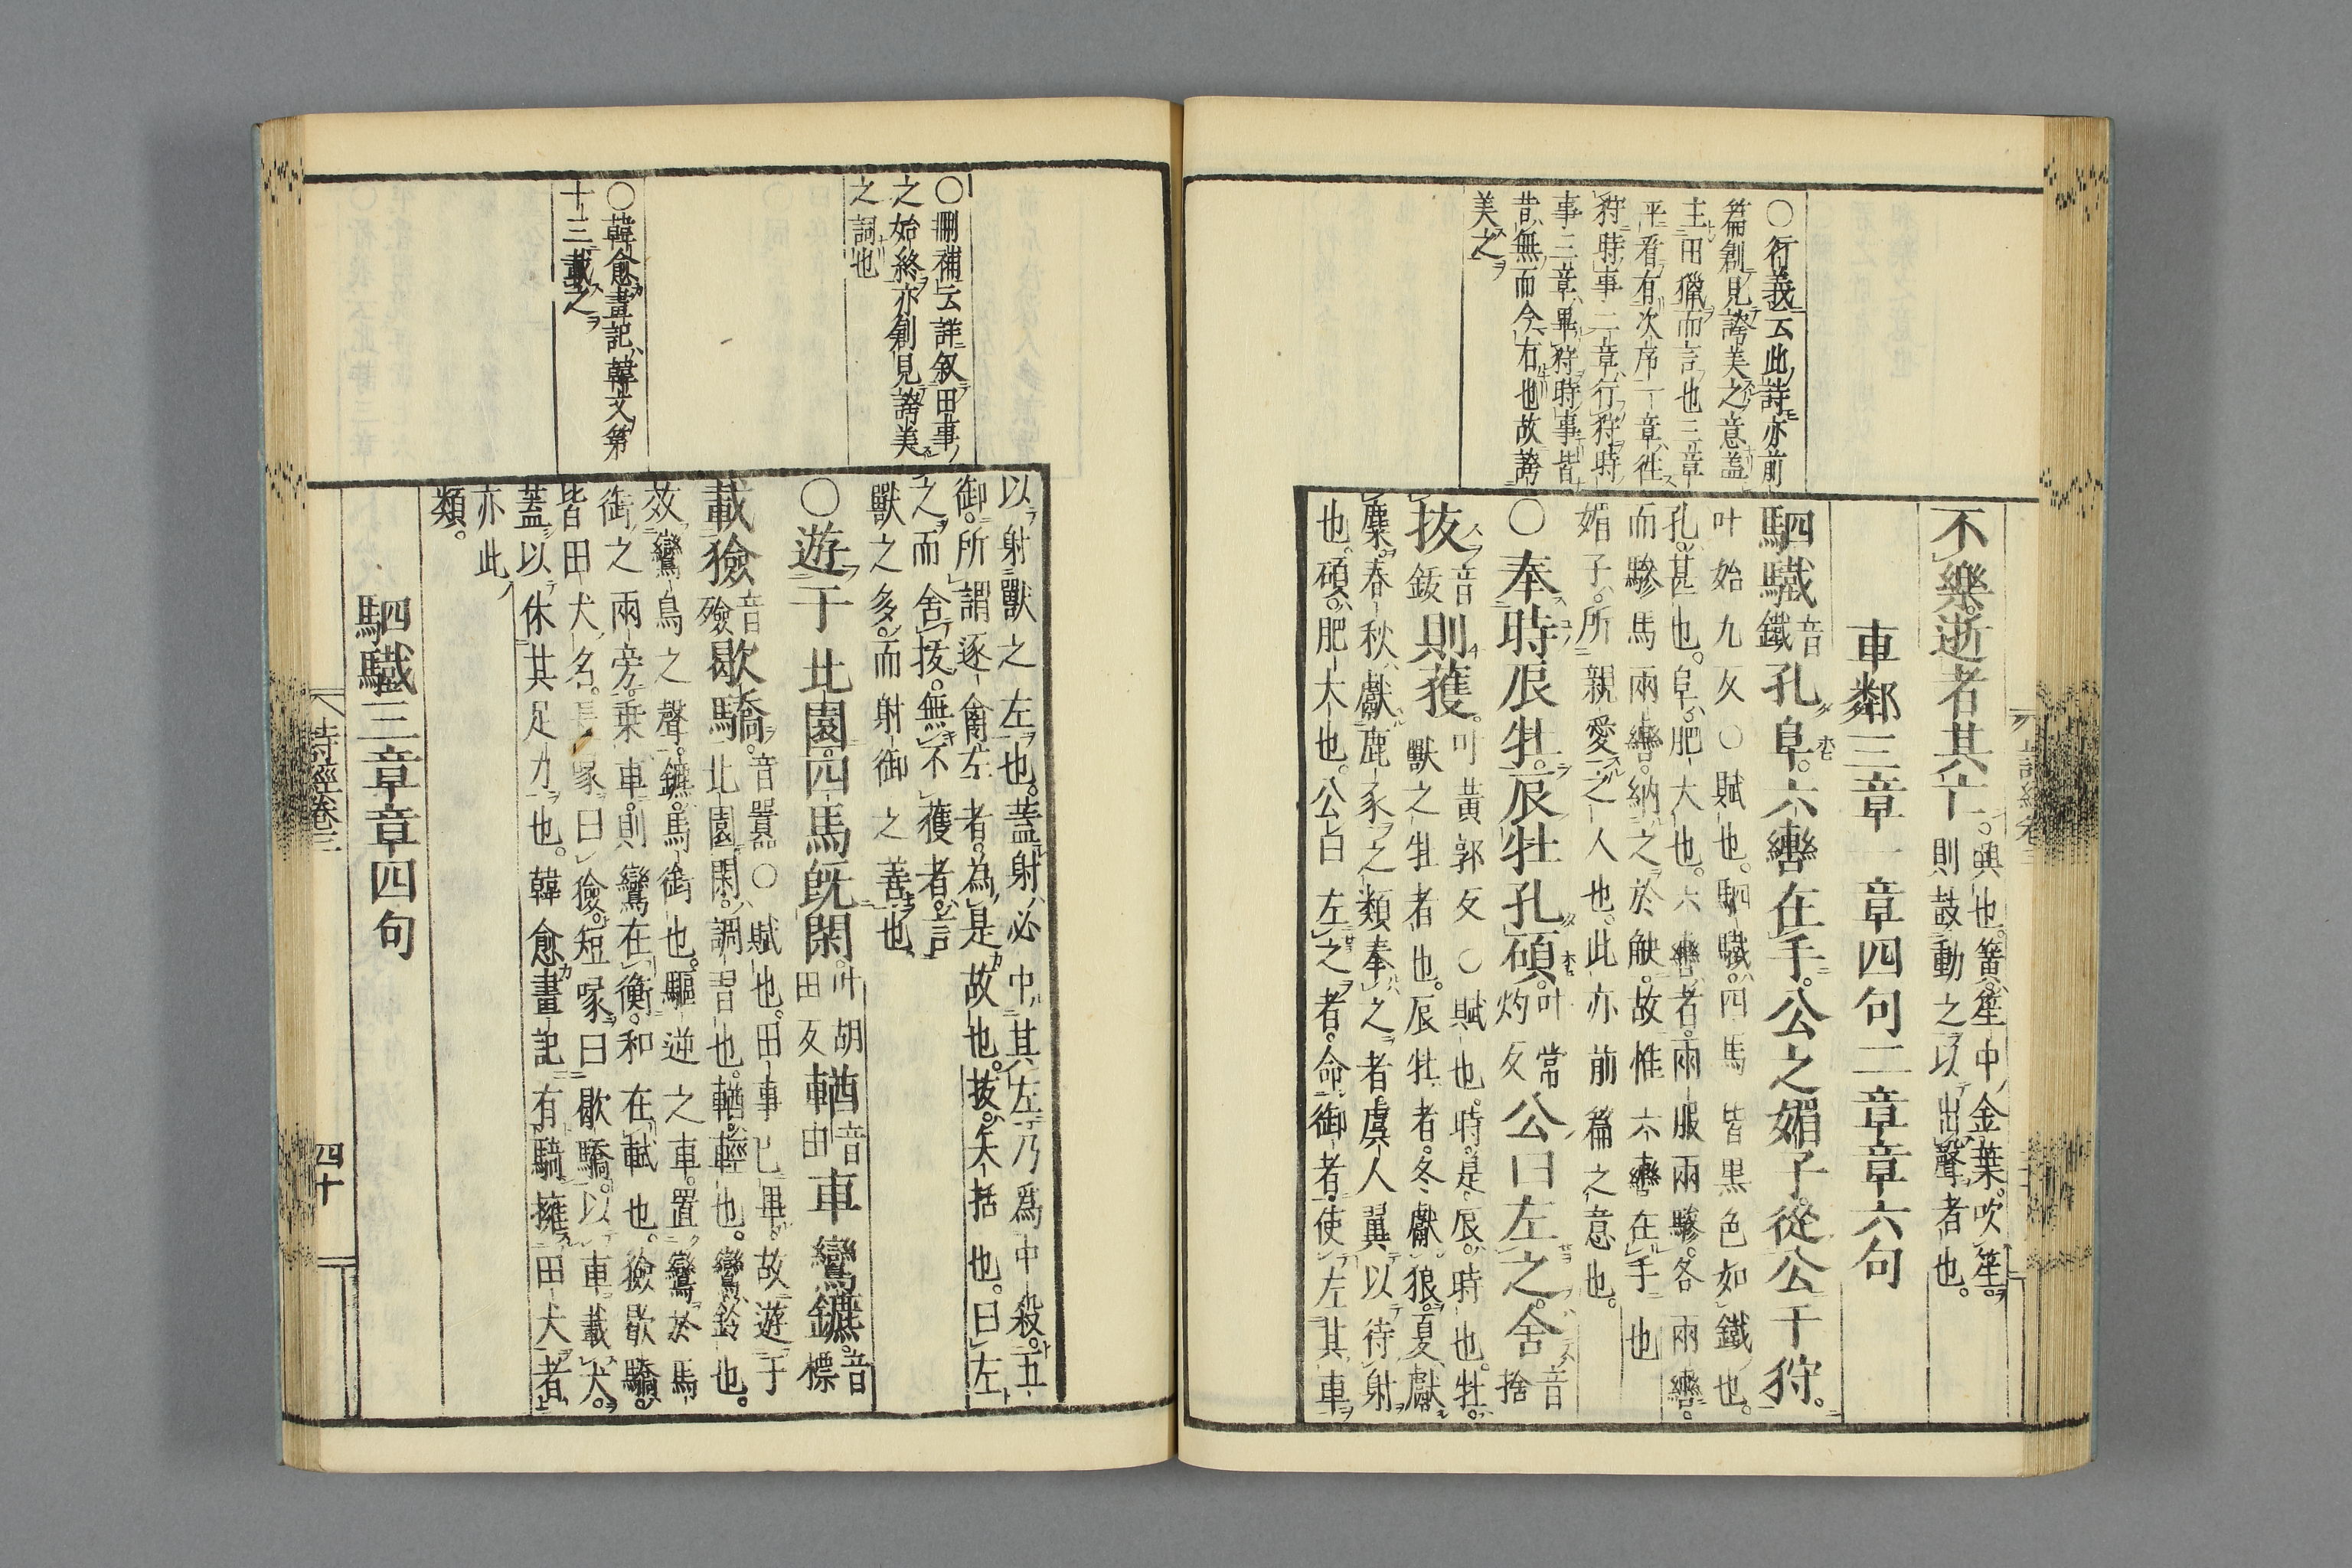 ○行義云此詩亦前
篇創見誇美之意蓋
主田獵而言也三章
平看有次序一章徃
狩時事二章行狩時
事三章畢狩時事皆
昔無而今有也故誇
美之
不樂逝者其亡。興也。簧笙中金葉。吹笙。
則鼓動之以出聲者也。
車鄰三章一章四句二章章六句
駟驖音鐵孔阜。六轡在手。公之媚子從公于狩。
叶始九反○賦也。駟驖四馬皆黒色如鐵也。
孔甚也。阜肥大也。六轡者。兩服兩驂。各兩轡。
而驂馬兩轡。納之於觖。故惟六轡在手也
媚子。所親愛之人也。此亦前篇之意也。
○奉時辰牡。辰牡孔碩。叶常灼反公曰左之。舍音捨
拔音鈸則獲。叶黄郭反○賦也。時是。辰時也。牡。
獸之牡者也。辰牡者。冬獻狼。夏獻
麋。春秋獻鹿豕之類奉之者。虞人翼以待射
也。碩肥大也。公曰左之者。命御者使左其車
○刪補云詳叙田事
之始終亦創見誇美
之詞也
○韓愈畫記韓文第
十三載之
以射獸之左也。蓋射必中其左乃爲中殺。五
御。所謂逐禽左者。為是故也。拔。矢括也。曰左
之。而舍拔。無不獲者。言
獸之多。而射御之善也
○遊于北園。四馬旣閑。叶胡田反輶音由車鸞鑣。音標
載獫音殮歇驕。音囂○賦也。田事已畢。故遊于
北園。閑。調習也。輶輕也。鸞鈴也。
效鸞鳥之聲。鑣。馬銜也。驅逆之車。置鸞於馬
銜之兩旁。乗車。則鸞在衡。和在軾也。獫歇驕
皆田犬名。長喙曰獫。短喙曰歇驕。以車載犬。
蓋以休其足力也。韓愈畫記有騎擁田犬者
亦此
類。
駟驖三章章四句
詩經卷三
四十